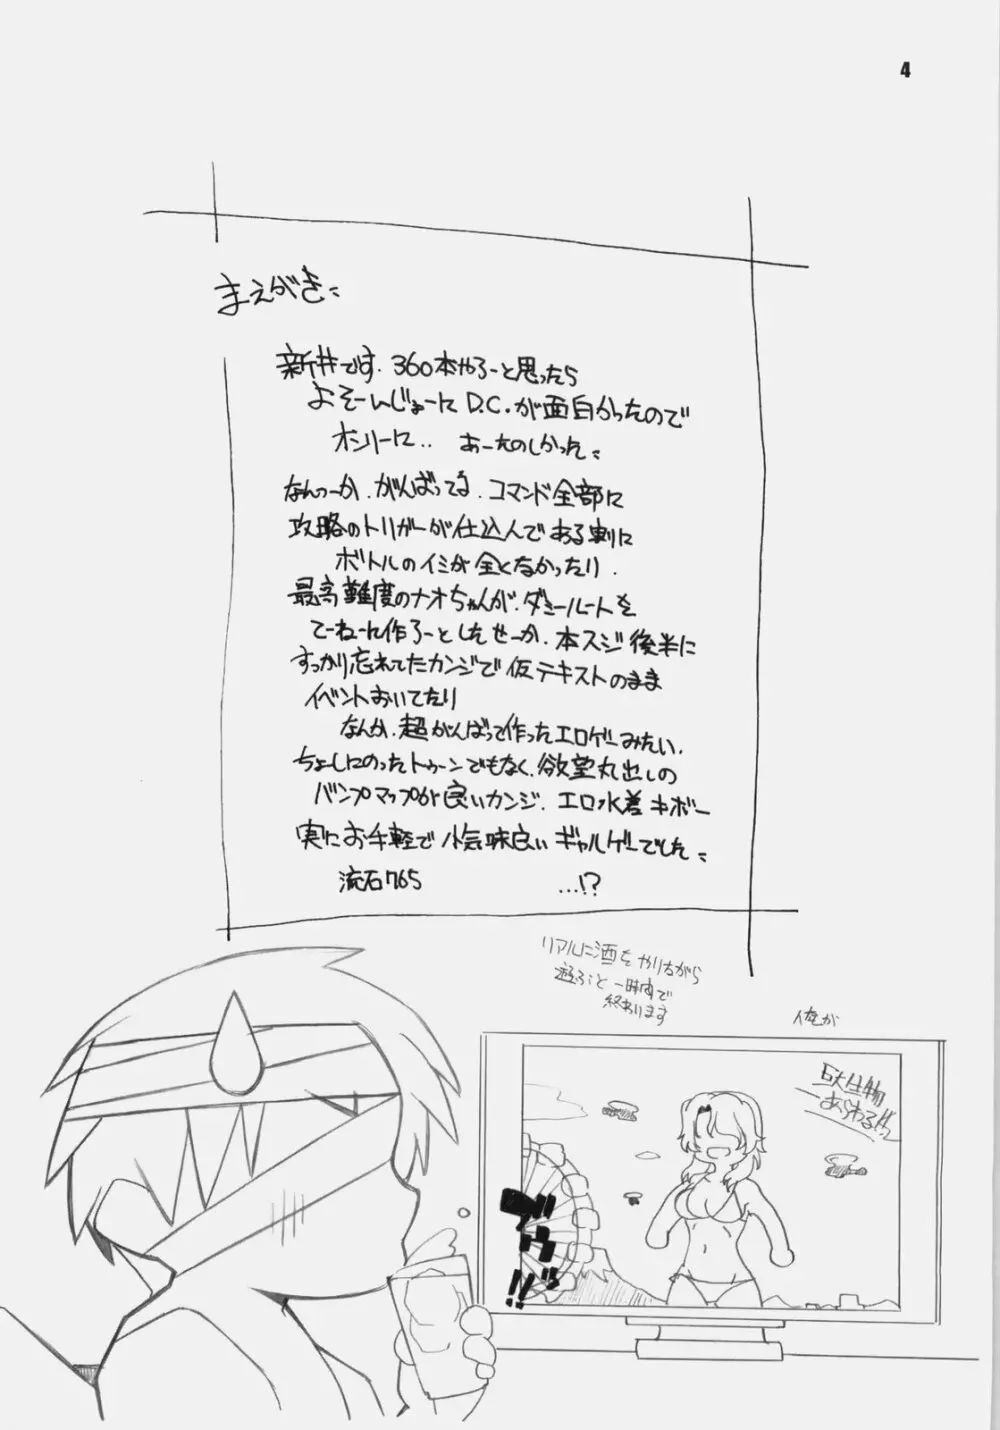 4
まえがき:
新井です. 360本やろーと思ったら
よそーいじょーに D.C. が面白かったので
オンリーに.. あーたのしかった:
なんつーか. がんばってる. コマンド全部に
攻略のトリガーが仕込んである割に
ボトルのイミが全くなかったり.
最高難度のナオちゃんが. ダミールートを
てーねーに作ろーとしたせーか. 本スジ後半に
すっかり忘れてたカンジで仮テキストのまま
イベントおいてたり
なんか. 超がんばって作ったエロゲーみたい.
ちょーしにのったトゥーンでもなく. 欲望丸出しの
バンプマップが良いカンジ. エロ水着キボー
実にお手軽で小気味良いギャルゲーでした:
流石765 ...!?
リアルに酒をやりながら
遊ぶと一時間で
終わります
俺が
巨大生物
あらわる!!